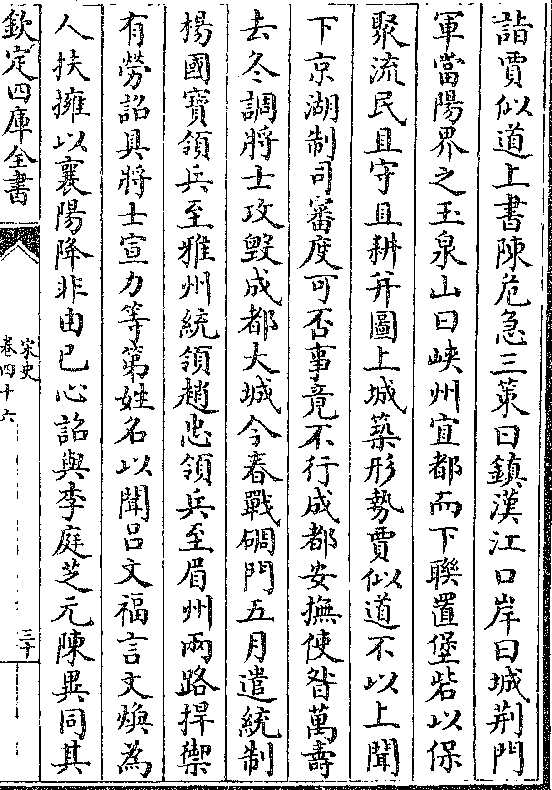 詣賈似道上書陳危急三策曰鎮漢江口岸曰城荆門
軍當陽界之玉泉山曰峽州宜都而下聯置堡砦以保
聚流民且守且耕并圖上城築形勢賈似道不以上聞
下京湖制司審度可否事竟不行成都安撫使昝萬壽
去冬調將士攻毁成都大城今春戰碉門五月遣統制
楊國寶領兵至雅州統領趙忠領兵至眉州兩路捍禦
有勞詔具將士宣力等第姓名以聞吕文福言文煥為
人扶擁以襄陽降非由已心詔與李庭芝元陳異同其
欽定四庫全書
宋史
卷四十六
三十